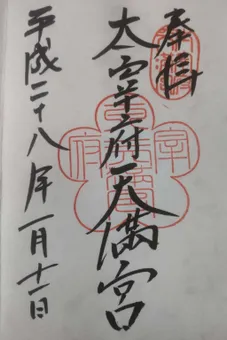 奉拝
太宰府天満宮
平成二十八年一月十一日